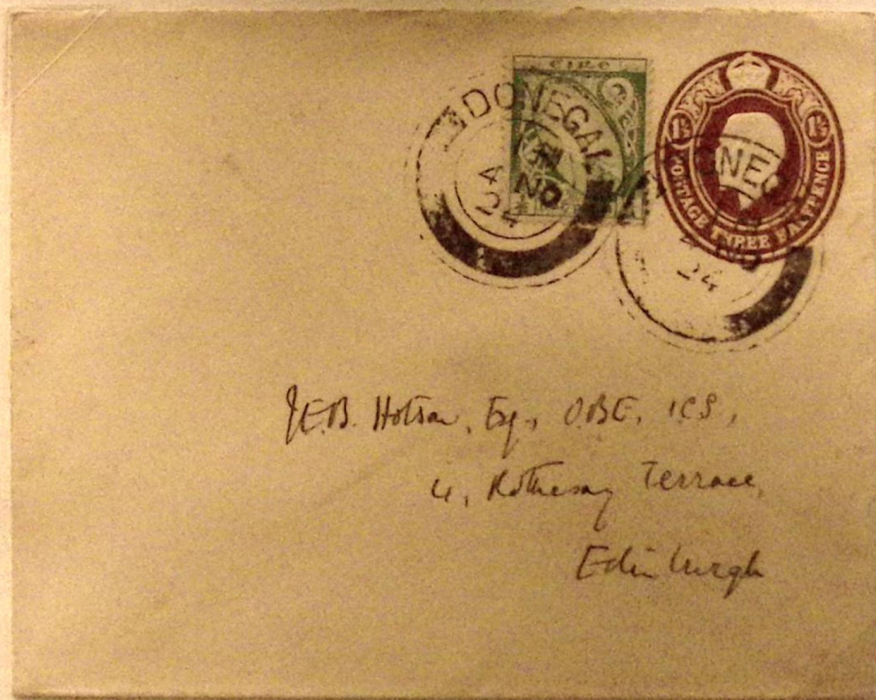 EIRE
DONEGAL
4 NO
24
1½ 1½
POSTAGE THREE HALFPENCE
DONEG
NO
24
J.E.B. Hotson, Esq., O.B.E., I.C.S,
4, Rothesay Terrace,
Edinburgh